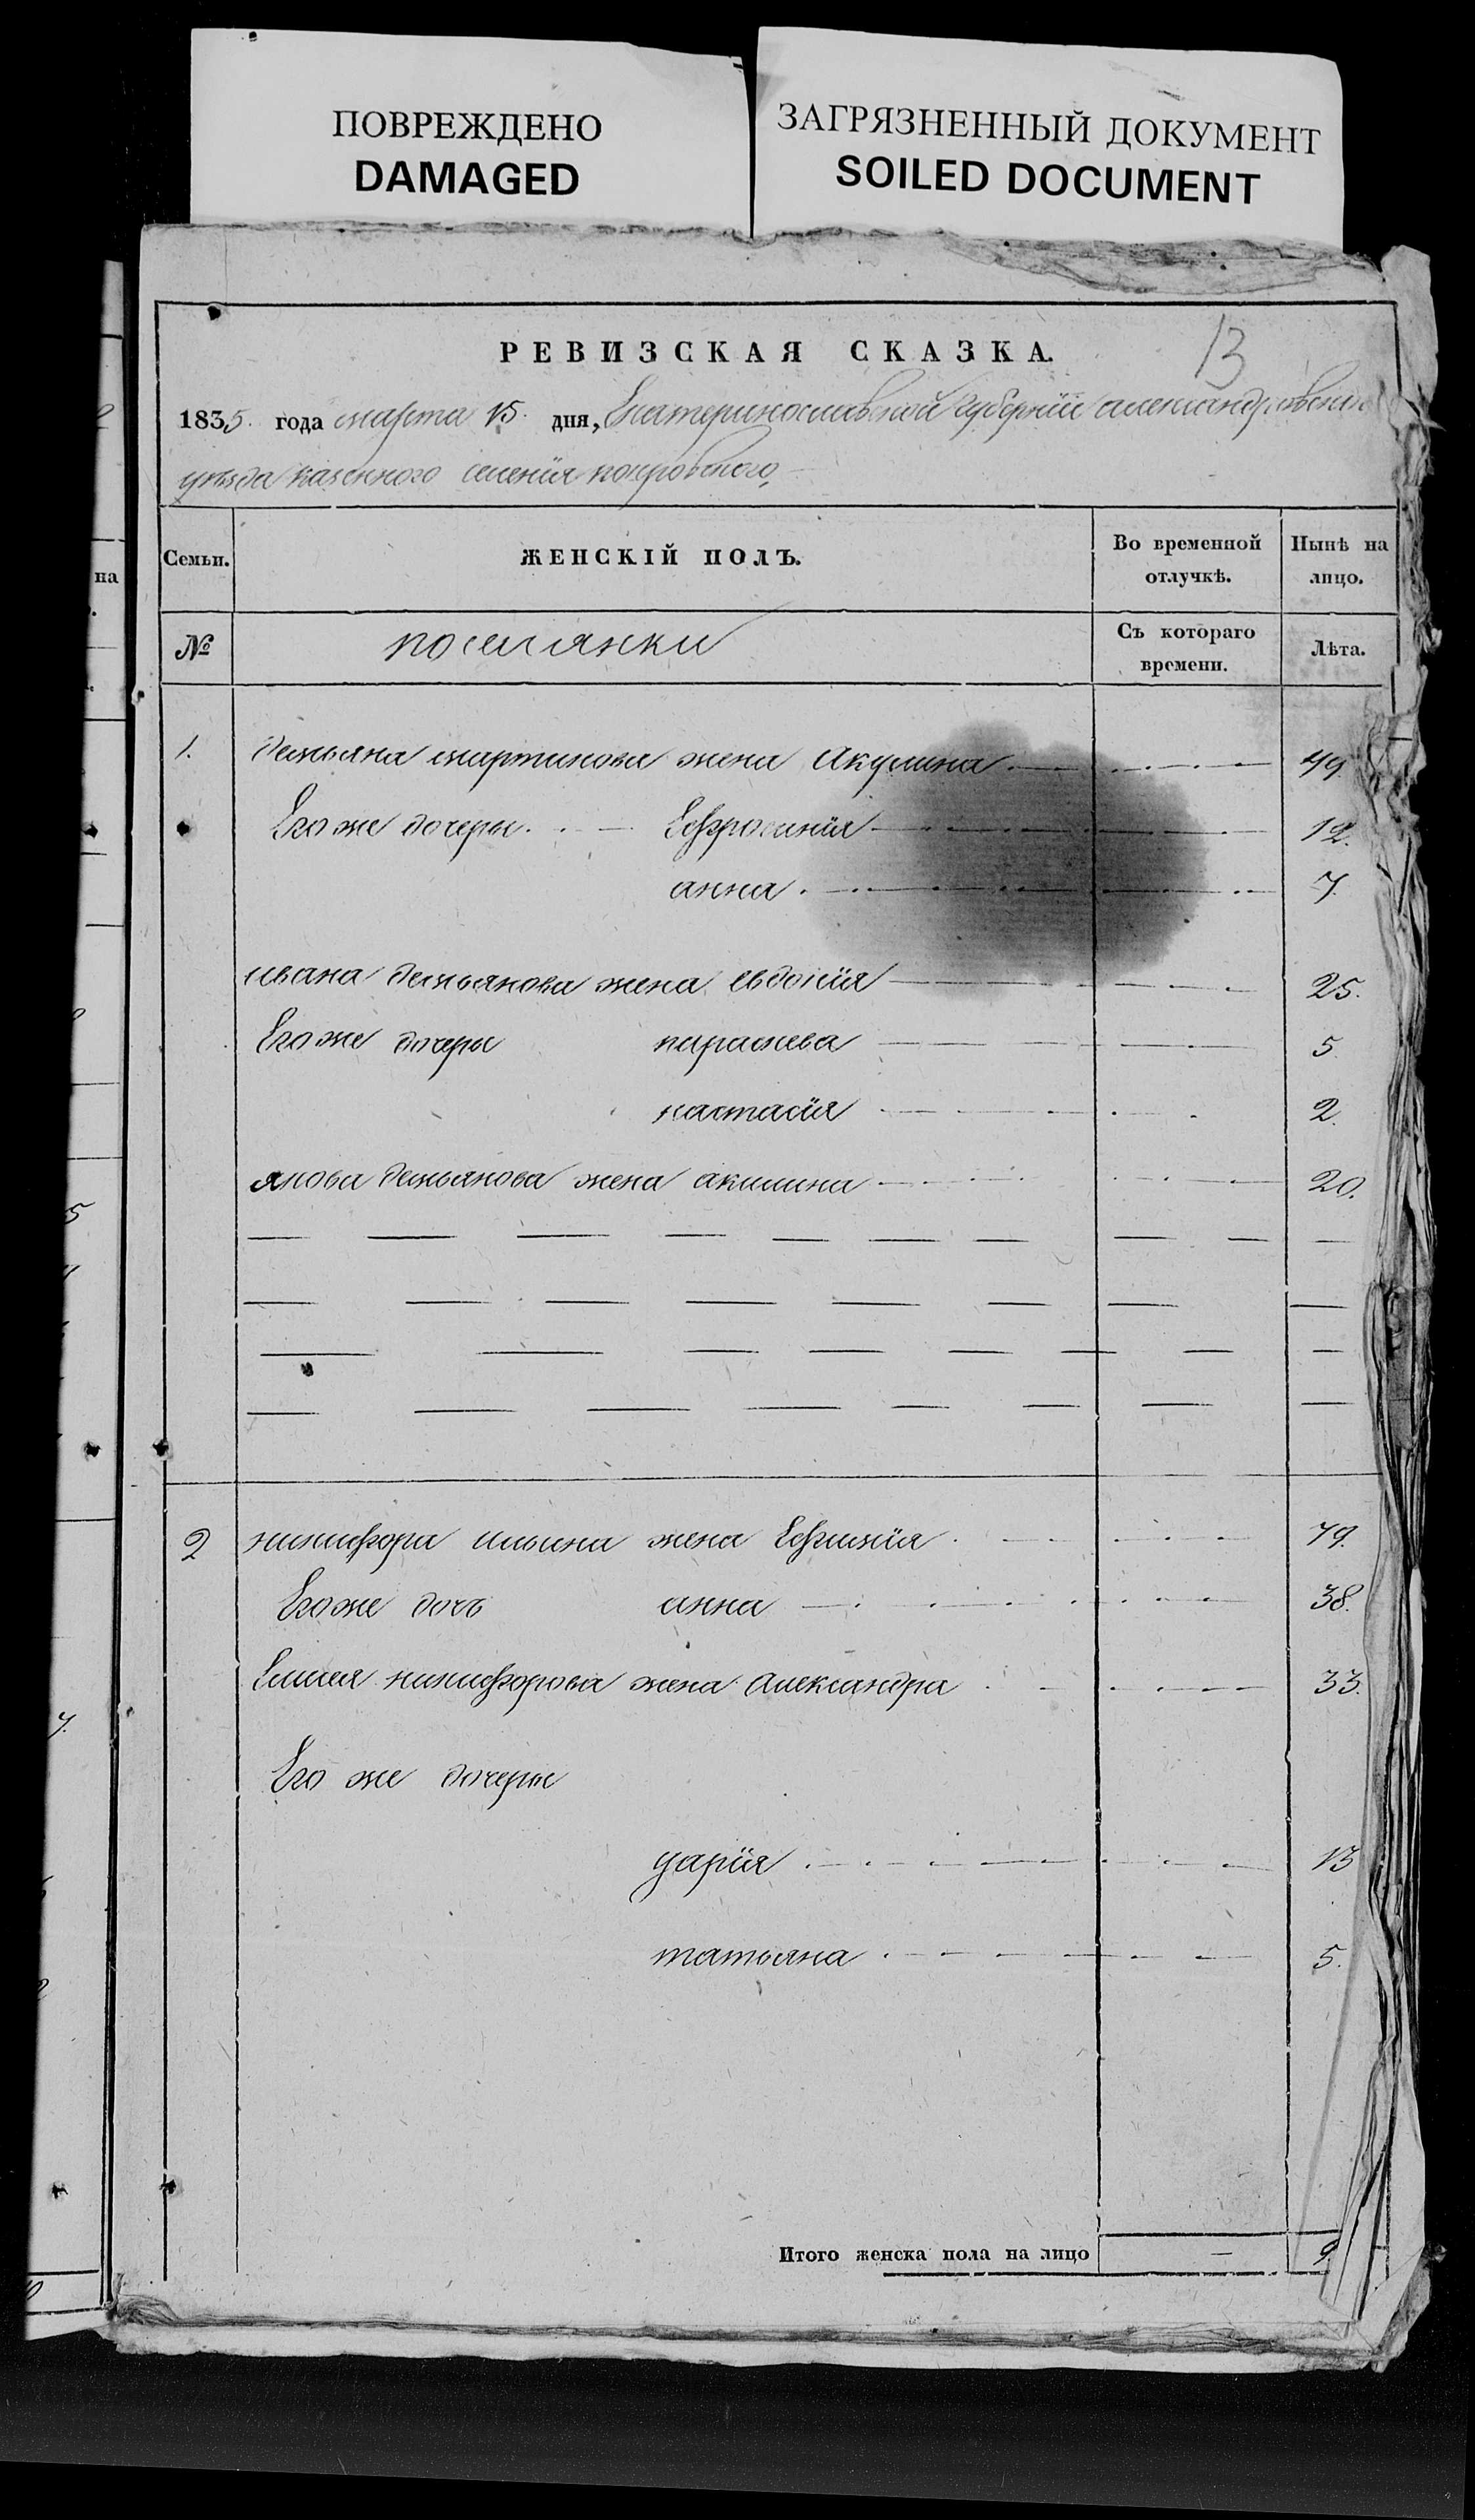 ПОВРЕЖДЕНО
DAMAGED
ЗАГРЯЗНЕННЫЙ ДОКУМЕНТ
SOILED DOCUMENT
13
РЕВИЗСКАЯ СКАЗКА.
1835. года марта 15. дня, Екатеринославской Губернїи александровского
уѣзда казенного селенїя покровского,
Семьи. ЖЕНСКІЙ ПОЛЪ. Во временной отлучкѣ. Нынѣ на лицо.
№ поселянки Съ котораго времени. Лѣта.
1. демьяна мартинова жена Акулина 49
Его же дочеры Ефросинїя 12.
анна 7.
ивана демьянова жена евдокїя 25.
Его же дочеры параскева 5
настасїя 2.
якова демьянова жена акилина 20.
2 никифора ильина жена Ефимїя 79.
Его же дочь анна 38.
Елисея никифорова жена Александра 33.
Его же дочеры
дарїя 13
татьяна 5.
Итого женска пола на лицо — 9